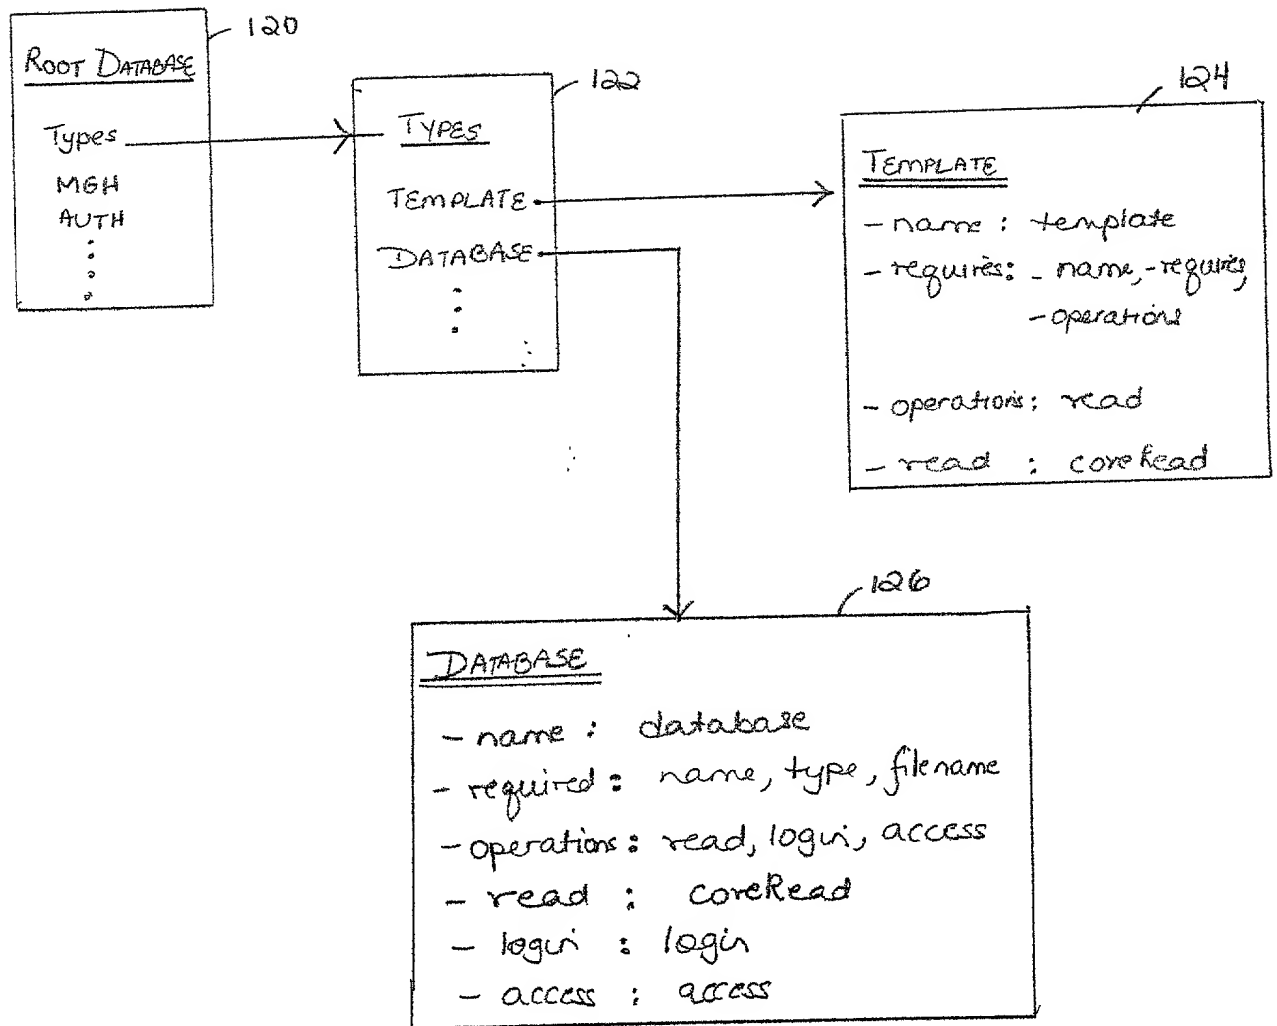 120
ROOT DATABASE
Types
MGH
AUTH
122
TYPES
TEMPLATE
DATABASE
124
TEMPLATE
- name : template
- requires: - name, -requires,
- operations
- operations: read
- read : coreRead
126
DATABASE
- name : database
- required : name, type, filename
- operations : read, login, access
- read : coreRead
- login : login
- access : access